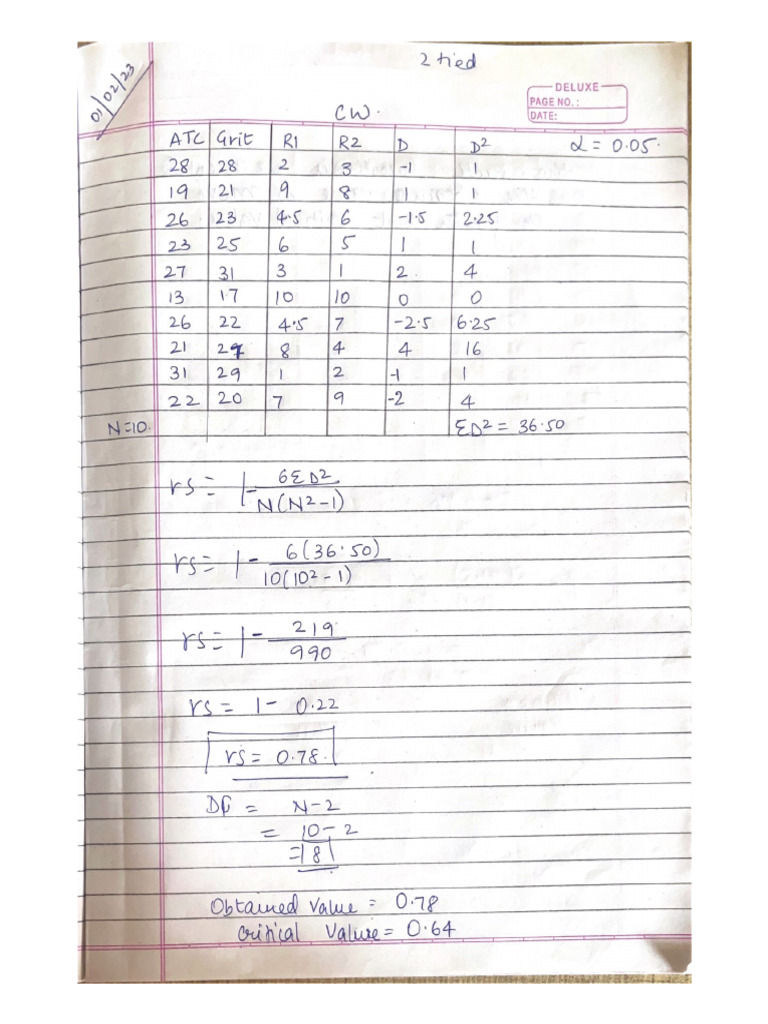 2 tied
01/02/23
DELUXE
PAGE NO. :
DATE:
CW.
ATC Grit R1 R2 D D² α = 0.05.
28 28 2 3 -1 1
19 21 9 8 1 1
26 23 4.5 6 -1.5 2.25
23 25 6 5 1 1
27 31 3 1 2 4
13 17 10 10 0 0
26 22 4.5 7 -2.5 6.25
21 27 8 4 4 16
31 29 1 2 -1 1
22 20 7 9 -2 4
N=10. ΣD² = 36.50
rs = 1 - 6ΣD²
N(N²-1)
rs = 1 - 6(36.50)
10(10²-1)
rs = 1 - 219
990
rs = 1 - 0.22
rs = 0.78
Df = N-2
= 10-2
= 8
Obtained Value = 0.78
Critical Value = 0.64